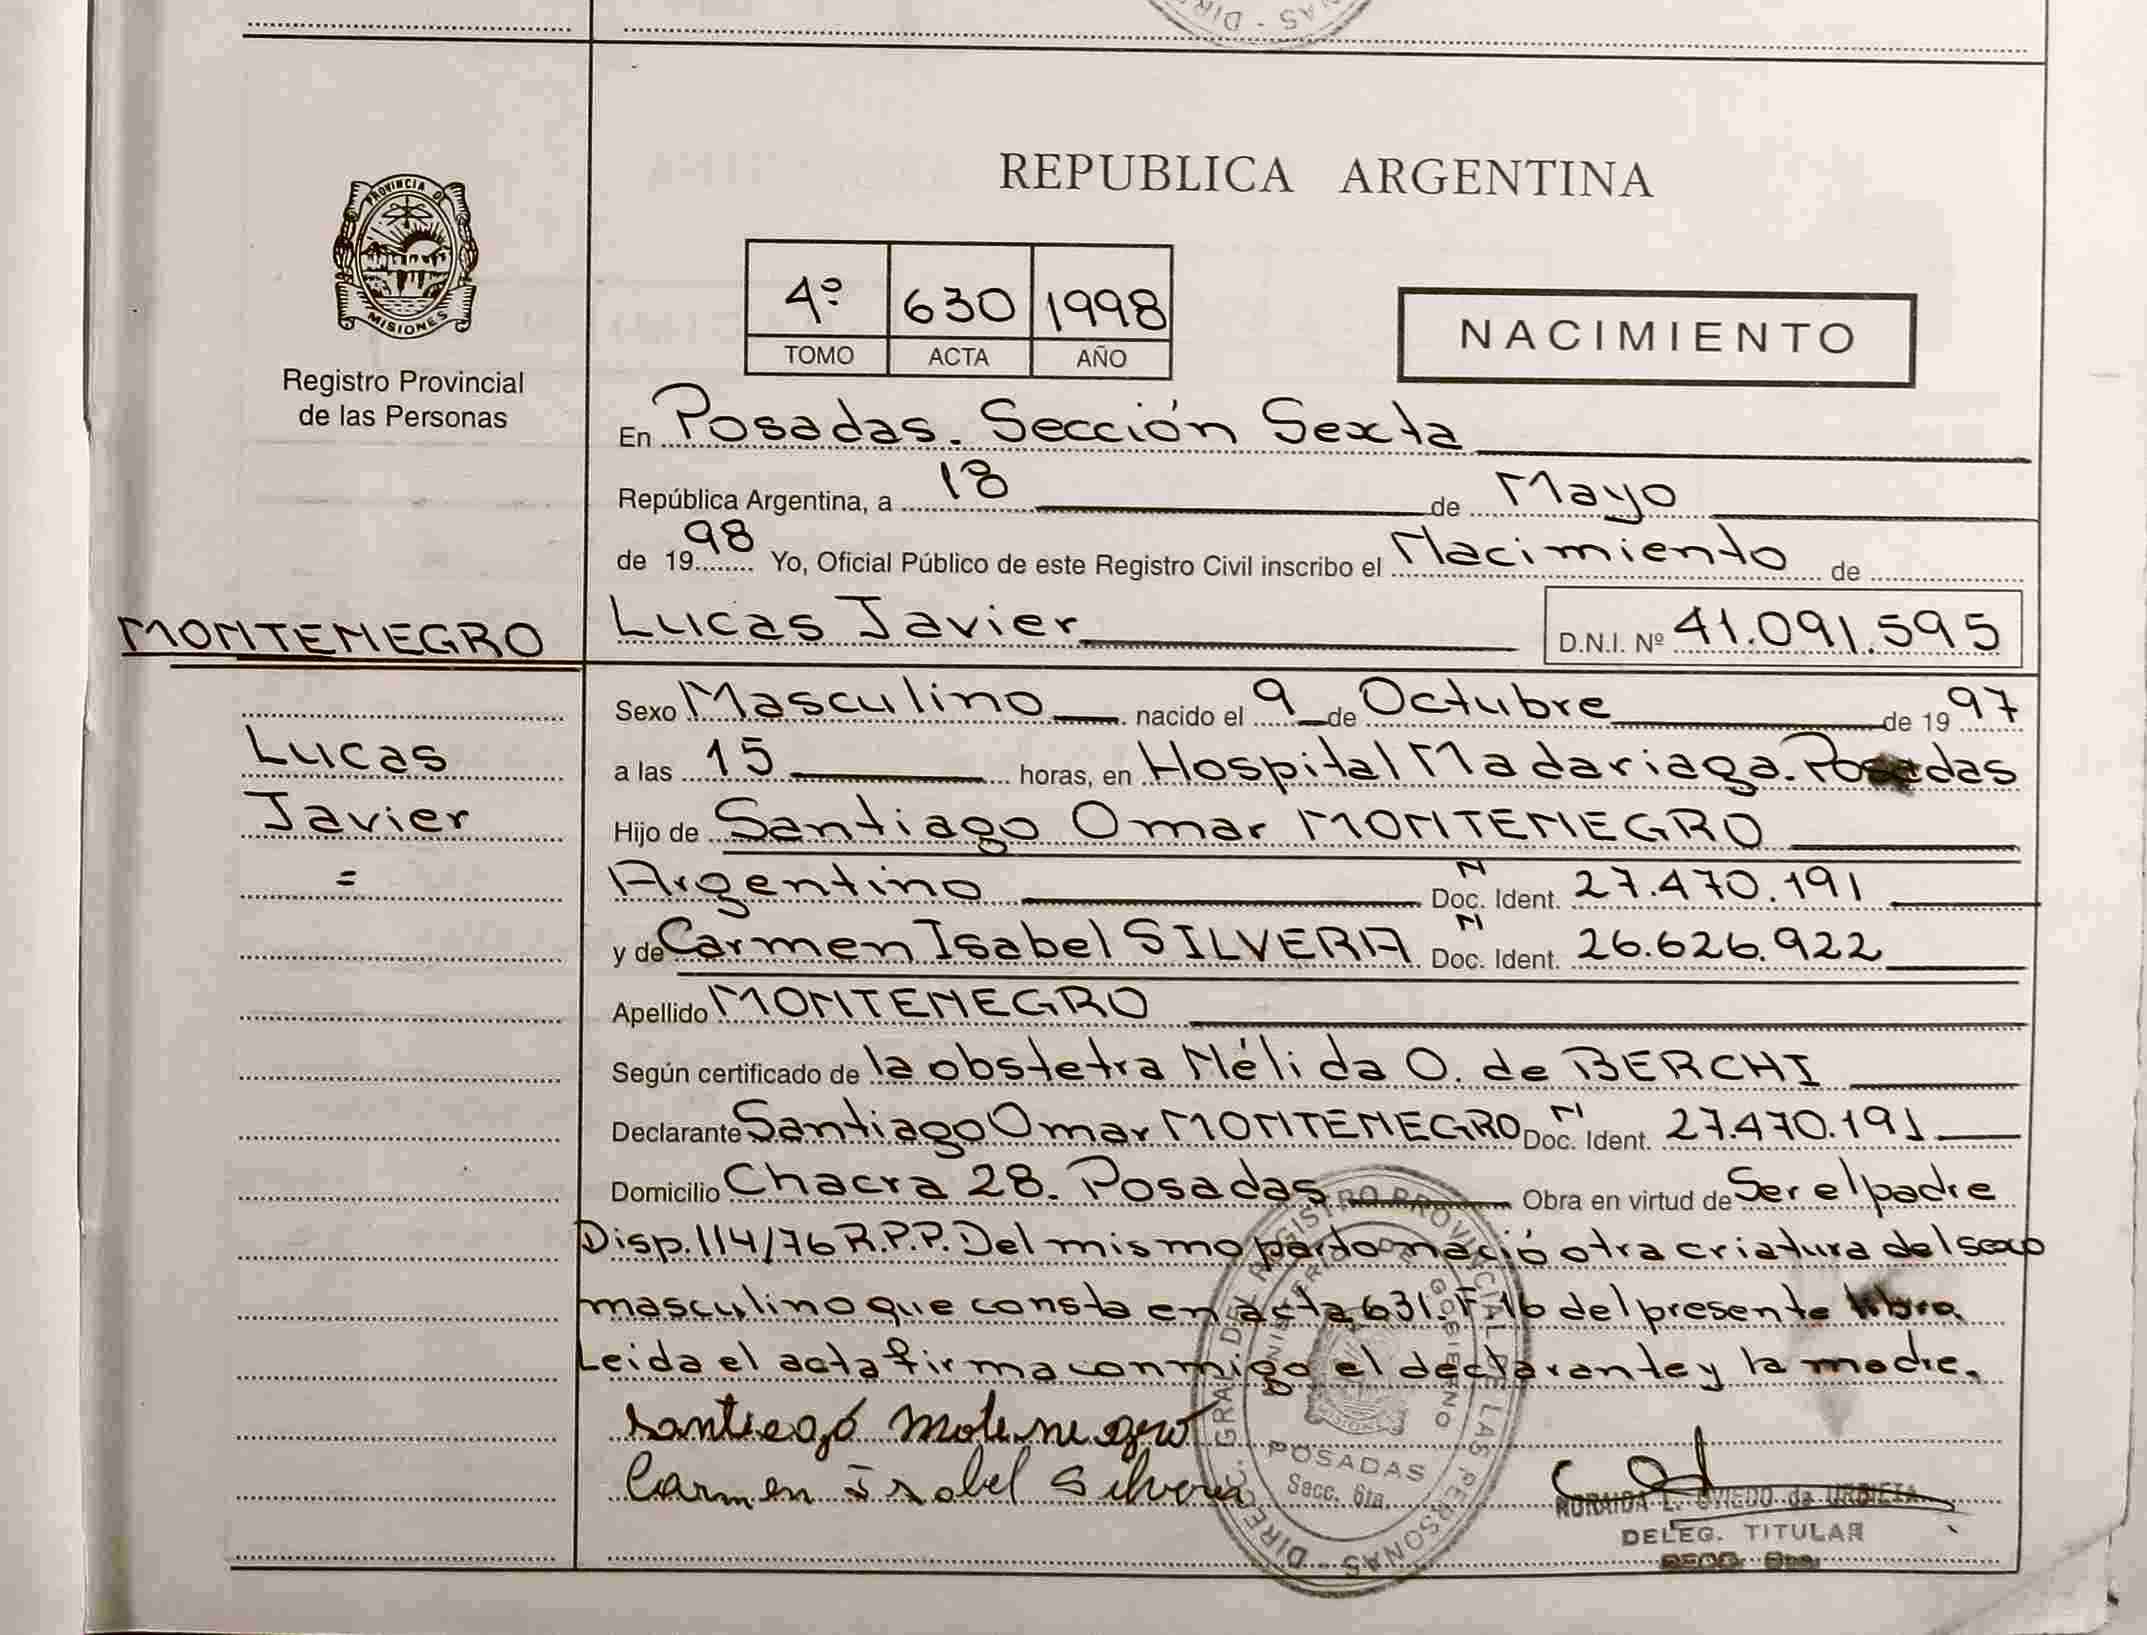 DIREC. - SONAS
REPUBLICA ARGENTINA
PROVINCIA DE
MISIONES
Registro Provincial
de las Personas
4º 630 1998
TOMO ACTA AÑO
NACIMIENTO
En Posadas. Sección Sexta
República Argentina, a 18 de Mayo
de 1998 Yo, Oficial Público de este Registro Civil inscribo el Nacimiento de
MONTENEGRO
Lucas Javier D.N.I. Nº 41.091.595
Sexo Masculino nacido el 9 de Octubre de 1997
Lucas
a las 15 horas, en Hospital Madariaga. Posadas
Javier
Hijo de Santiago Omar MONTENEGRO
=
Argentino N Doc. Ident. 27.470.191
y de Carmen Isabel SILVERA N Doc. Ident. 26.626.922
Apellido MONTENEGRO
Según certificado de la obstetra Nélida O. de BERCHI
Declarante Santiago Omar MONTENEGRO N Doc. Ident. 27.470.191
Domicilio Chacra 28. Posadas Obra en virtud de Ser el padre
Disp. 114/76 R.P.P. Del mismo parto nació otra criatura del sexo
masculino que consta en acta 631. F 16 del presente libro.
Leida el acta firma conmigo el declarante y la madre.
Santiago Motenegro
Carmen Isabel Silvera
DIREC. GRAL. DEL REGISTRO PROVINCIAL DE LAS PERSONAS
MINISTERIO DE GOBIERNO
MISIONES
POSADAS
Secc. 6ta.
L. OVIEDO de URBIETA
DELEG. TITULAR